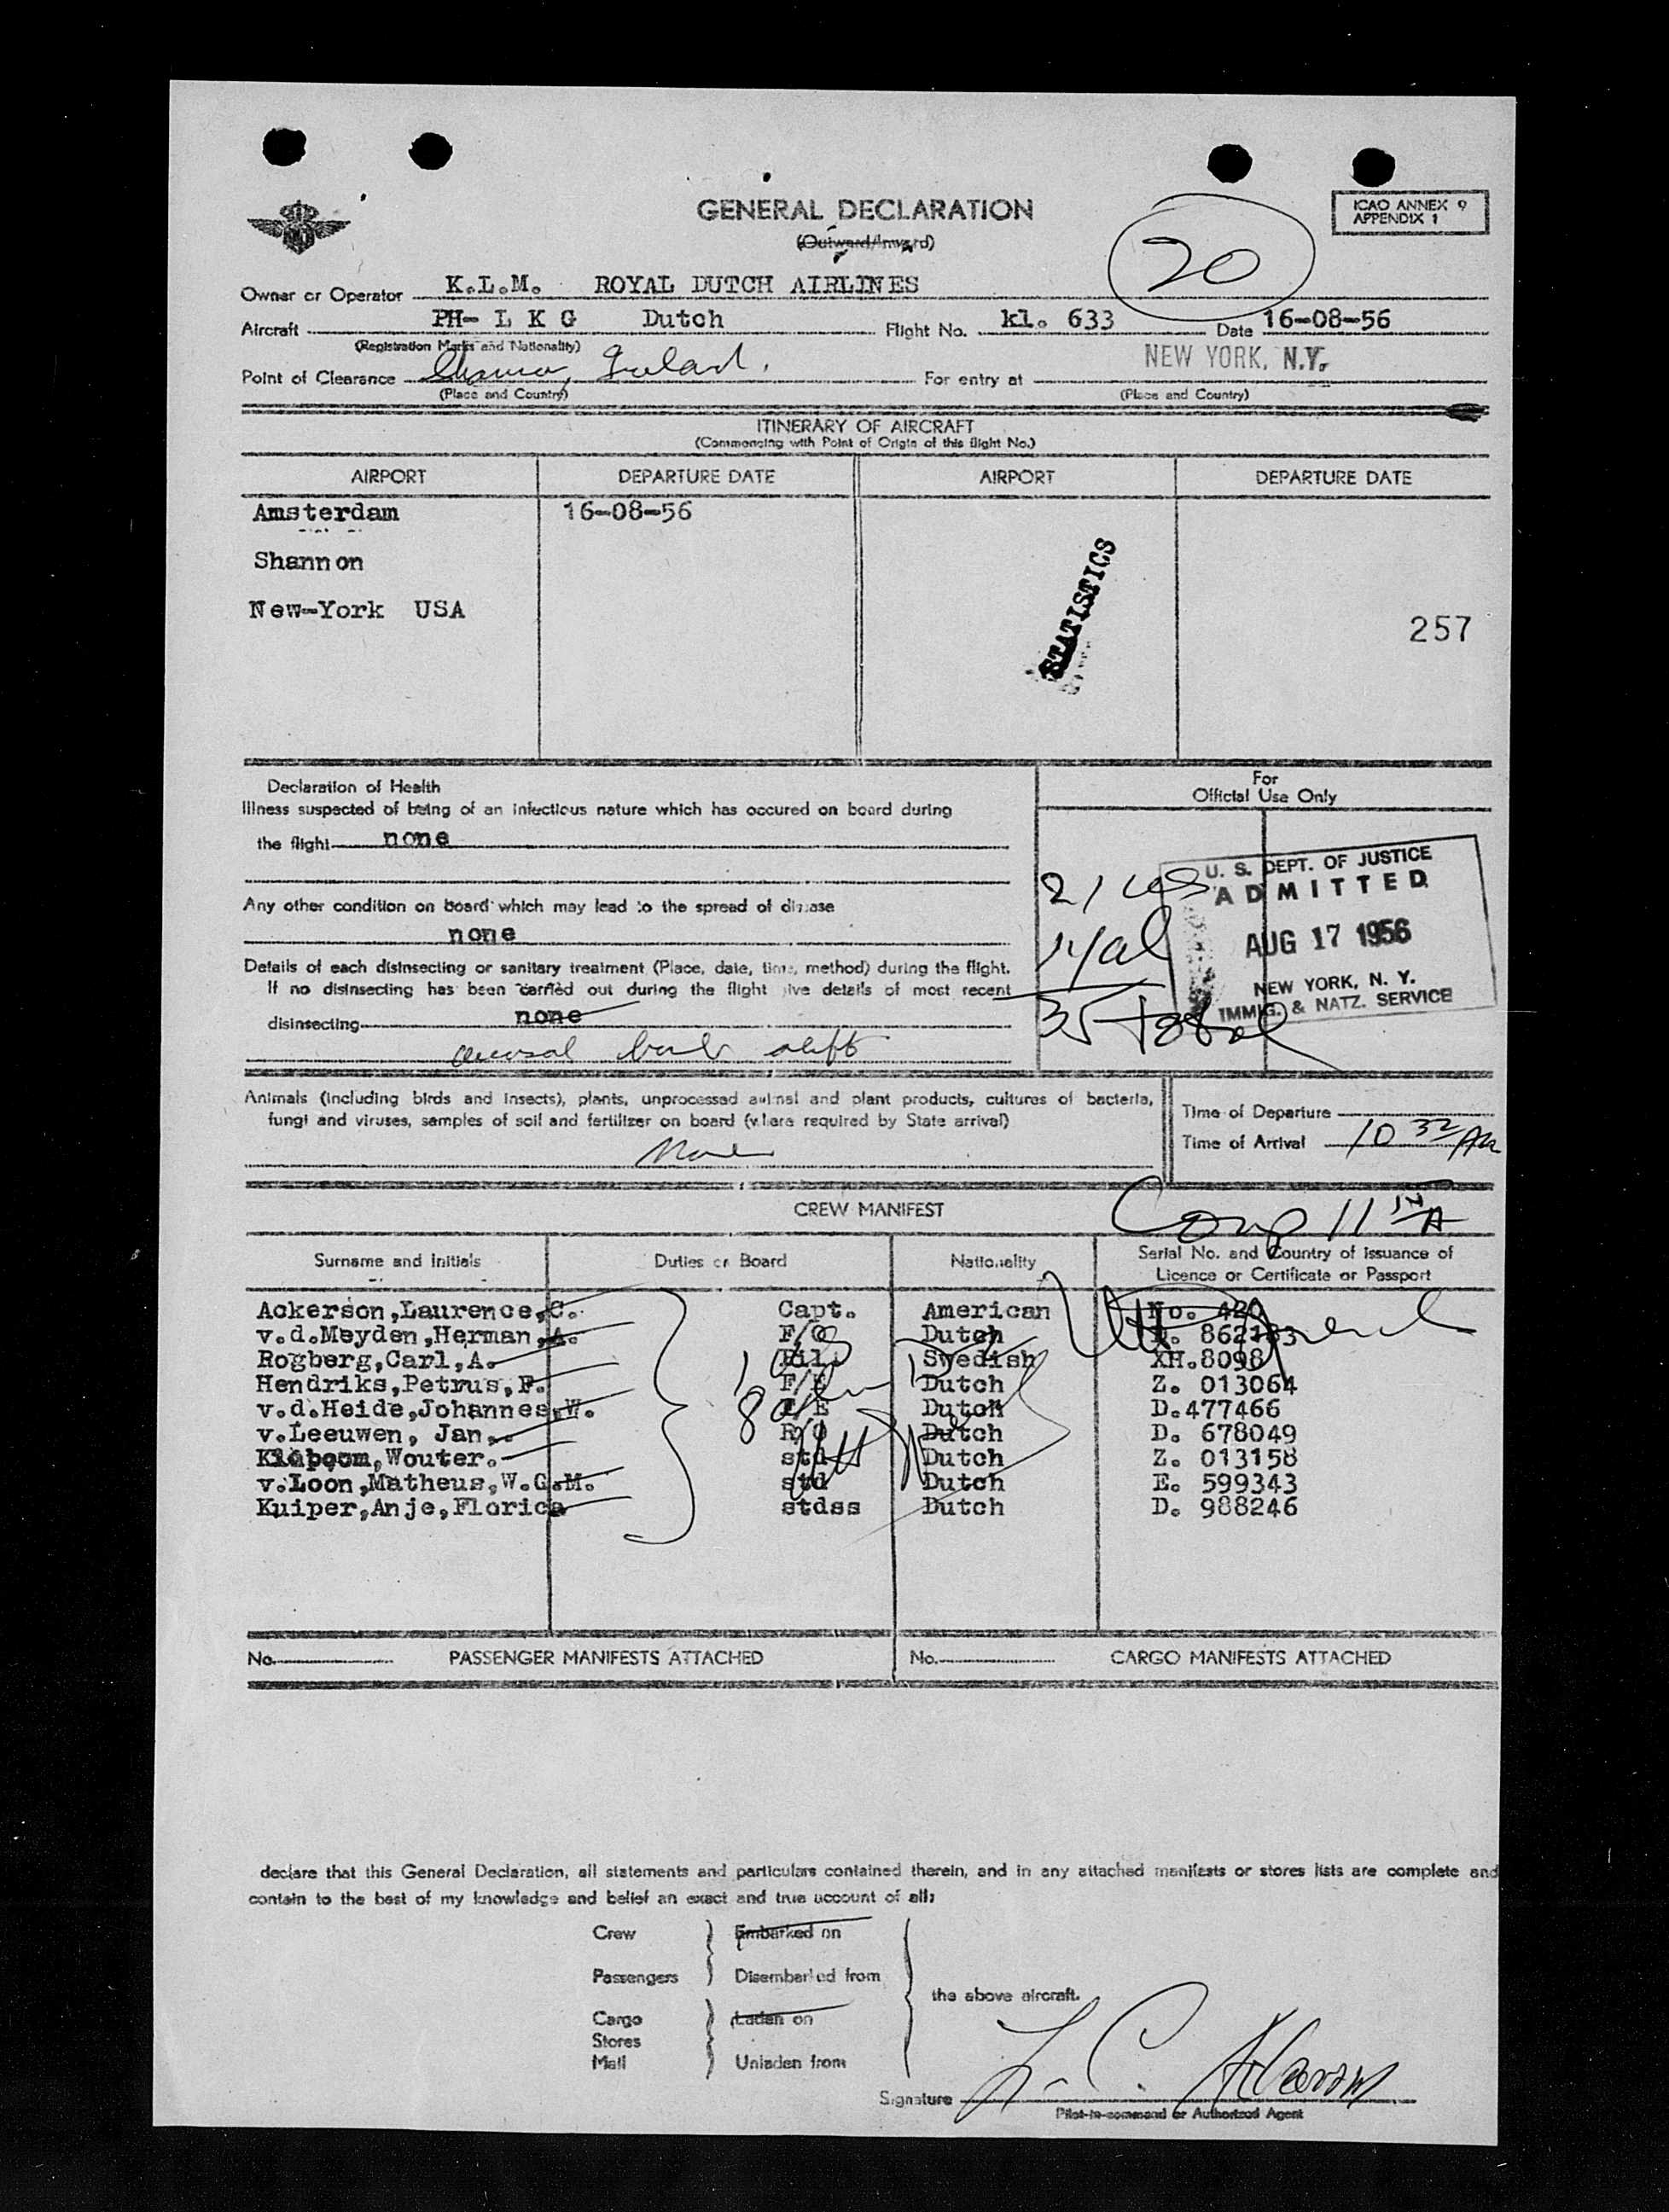 GENERAL DECLARATION
(Outward/Inward)
ICAO ANNEX 9
APPENDIX 1
20
Owner or Operator K.L.M. ROYAL DUTCH AIRLINES
Aircraft PH- L K G Dutch Flight No. kl. 633 Date 16-08-56
(Registration Marks and Nationality)
Point of Clearance Shannon, Ireland. For entry at NEW YORK, N.Y.
(Place and Country) (Place and Country)
ITINERARY OF AIRCRAFT
(Commencing with Point of Origin of this flight No.)
AIRPORT DEPARTURE DATE AIRPORT DEPARTURE DATE
Amsterdam 16-08-56
Shannon
New-York USA
STATISTICS
257
Declaration of Health
Illness suspected of being of an infectious nature which has occured on board during
the flight none
Any other condition on board which may lead to the spread of disease
none
Details of each disinsecting or sanitary treatment (Place, date, time, method) during the flight.
If no disinsecting has been carried out during the flight give details of most recent
disinsecting none
aerosol
For
Official Use Only
21 uss
14 al
35
U. S. DEPT. OF JUSTICE
ADMITTED
AUG 17 1956
NEW YORK, N. Y.
IMMIG. & NATZ. SERVICE
Animals (including birds and insects), plants, unprocessed animal and plant products, cultures of bacteria,
fungi and viruses, samples of soil and fertilizer on board (where required by State arrival)
None
Time of Departure
Time of Arrival 10 32 AM
Comp 11
CREW MANIFEST
Surname and Initials Duties on Board Nationality Serial No. and Country of Issuance of
Licence or Certificate or Passport
Ackerson,Laurence,C. Capt. American No. 420
v.d.Meyden,Herman,A. F/O Dutch D. 862183
Rogberg,Carl,A. Pil. Swedish XH.8098
Hendriks,Petrus,F. F/E Dutch Z. 013064
v.d.Heide,Johannes,W. F/E Dutch D.477466
v.Leeuwen, Jan,. R/O Dutch D. 678049
Wouter. std Dutch Z. 013158
v.Loon,Matheus,W.G.M. std Dutch E. 599343
Kuiper,Anje,Florica stdss Dutch D. 988246
No. PASSENGER MANIFESTS ATTACHED No. CARGO MANIFESTS ATTACHED
declare that this General Declaration, all statements and particulars contained therein, and in any attached manifests or stores lists are complete and
contain to the best of my knowledge and belief an exact and true account of all:
Crew Embarked on
Passengers Disembarked from
the above aircraft.
Cargo Laden on
Stores
Mail Unladen from
Signature
Pilot-in-command or Authorized Agent